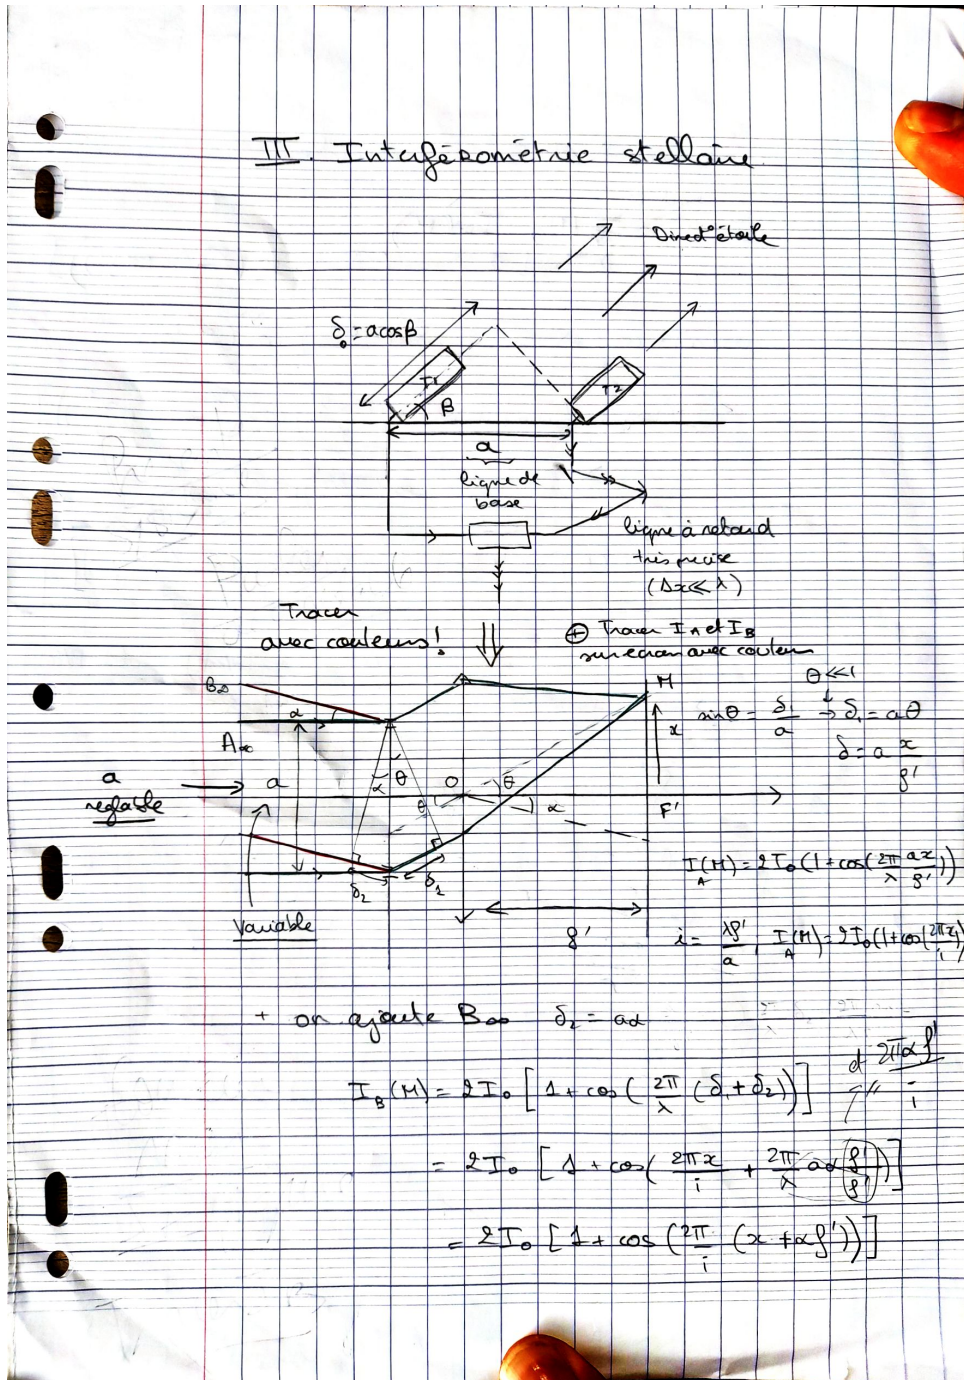 III. Interférométrie stellaire
Direct° étoile
δ₀ = a cosβ
T1
T2
β
a
ligne de
base
ligne à retard
très precise
(Δx ≪ λ)
Tracer
avec couleurs !
⊕ Tracer I_A et I_B
sur ecran avec couleurs
B∞
α
A∞
M
θ ≪ 1
sinθ = δ₁/a → δ₁ = aθ
x
δ = a x/f'
a
reglable
a
α
θ
O
θ
θ
α
F'
δ₂
δ₁
Variable
f'
I_A(M) = 2I₀(1+cos(2π/λ ax/f'))
i = λf'/a, I_A(M) = 2I₀(1+cos(2πx/i))
+ on ajoute B∞ δ₂ = aα
I_B(M) = 2I₀ [1 + cos(2π/λ (δ₁ + δ₂))]
2παf'/i
= 2I₀ [1 + cos(2πx/i + 2π/λ aα f'/f')]
= 2I₀ [1 + cos(2π/i (x + αf'))]